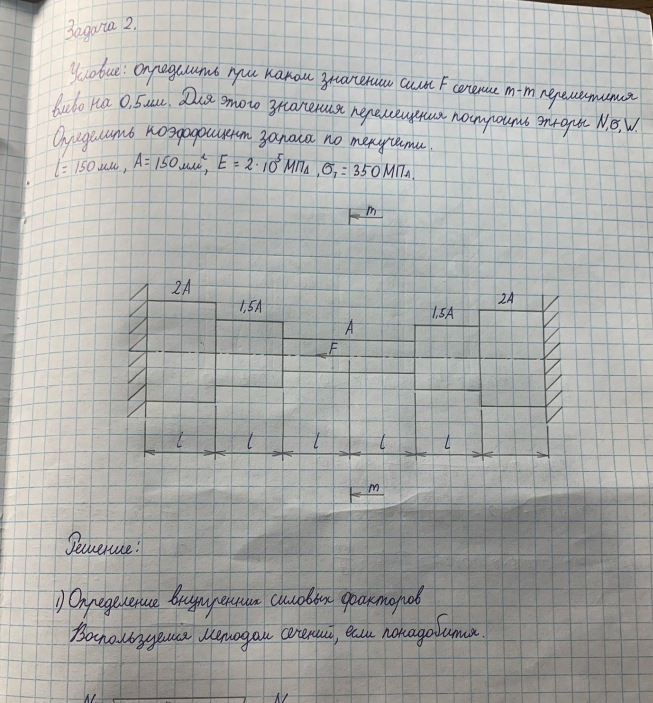 Задача 2.
Условие: Определить при каком значении силы F сечение m-m переместится
влево на 0,5мм. Для этого значения перемещения построить эпюры N,σ,W.
Определить коэффициент запаса по текучести.
l=150 мм, A=150мм², E=2·10⁵МПа, σт=350МПа.
m
2A
1,5A
A
1,5A
2A
F
l l l l l
m
Решение:
1) Определение внутренних силовых факторов
Воспользуемся методом сечений, если понадобится.
N N